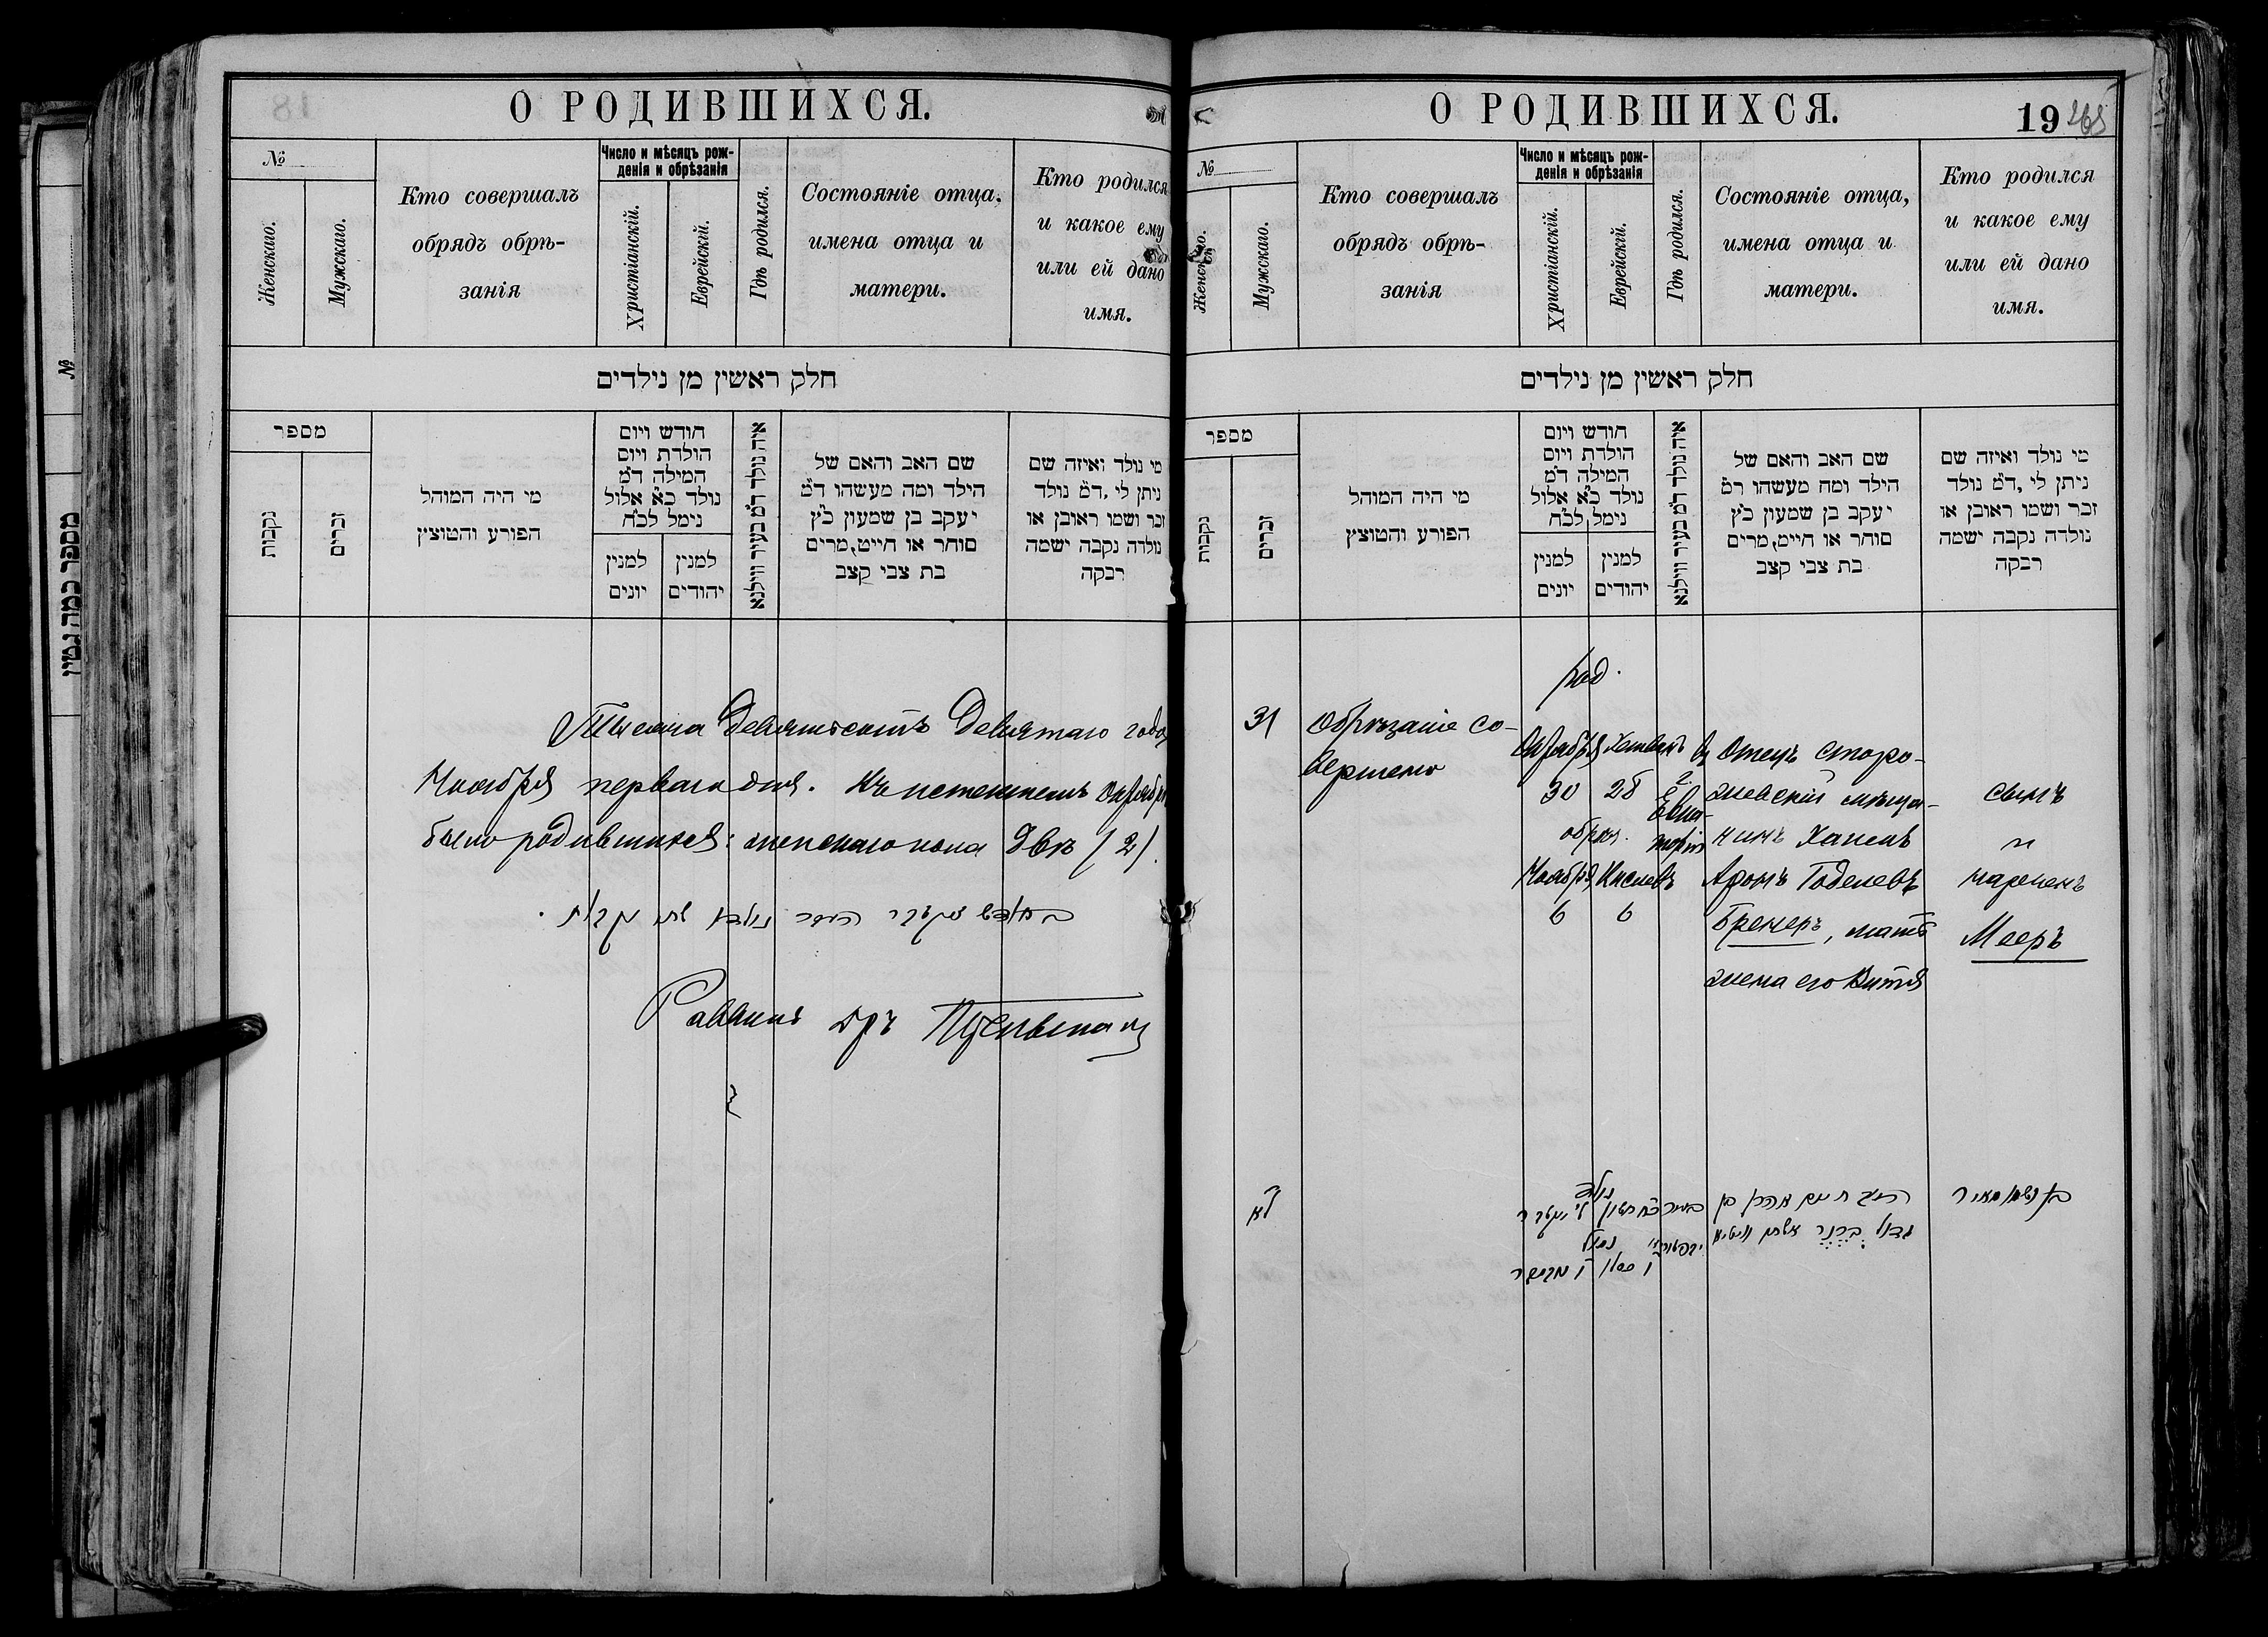 О РОДИВШИХСЯ.
№
Женскаго.
Мужскаго.
Кто совершалъ
обрядъ обрѣ-
занія
Число и мѣсяцъ рож-
денія и обрѣзанія
Христіанскій.
Еврейскій.
Гдѣ родился.
Состояніе отца,
имена отца и
матери.
Кто родился
и какое ему
или ей дано
имя.
חלק ראשין מן נילדים
מספר
נקבות
זכרים
מי היה המוהל
הפורע והטוצץ
חודש ויום
הולדת ויום
המילה ד״מ
נולד כ״א אלול
נימל לכ״ח
למנין
יונים
למנין
יהודים
איה נולד ד״מ בעיר ווילנא
שם האב והאם של
הילד ומה מעשהו ד״מ
יעקב בן שמעון כ״ץ
סוחר או חייט,מרים
בת צבי קצב
מי נולד ואיזה שם
ניתן לי ,ד״מ נולד
זכר ושמו ראובן או
נולדה נקבה ישמה
רבקה
Тысяча девятьсотъ девятаго года
Ноября перваго дня. Въ истекшемъ Октябрѣ
было родившихся: женскаго пола двѣ (2).
בחודש אקטבר העבר נולדו שתי נקבות.
Раввинъ дръ
О РОДИВШИХСЯ.
19
№
Женскаго.
Мужскаго.
Кто совершалъ
обрядъ обрѣ-
занія
Число и мѣсяцъ рож-
денія и обрѣзанія
Христіанскій.
Еврейскій.
Гдѣ родился.
Состояніе отца,
имена отца и
матери.
Кто родился
и какое ему
или ей дано
имя.
חלק ראשין מן נילדים
מספר
נקבות
זכרים
מי היה המוהל
הפורע והטוצץ
חודש ויום
הולדת ויום
המילה ד״מ
נולד כ״א אלול
נימל לכ״ח
למנין
יונים
למנין
יהודים
איה נולד ד״מ בעיר ווילנא
שם האב והאם של
הילד ומה מעשהו ד״מ
יעקב בן שמעון כ״ץ
סוחר או חייט,מרים
בת צבי קצב
מי נולד ואיזה שם
ניתן לי ,ד״מ נולד
זכר ושמו ראובן או
נולדה נקבה ישמה
רבקה
31
Обрѣзаніе со-
вершено
род.
Октября
30
обрѣз.
Ноября
6
Хешванъ
28
Кислевъ
6
въ
г.
Евпа-
торіи
Отецъ сторо-
жевскій мѣща-
нинъ Хаимъ
Аронъ Годелевъ
Бренеръ, мать
жена его Витя
сынъ
и
нареченъ
Мееръ
לא
נולד
ל׳ אקטבר
כ״ח חשון
נמול
ו׳ נאיעבר
ו׳ כסלו
בעיר
חיים אהרן בן
גדול ברנר אשתו וויטיא
בן ושמו מאיר